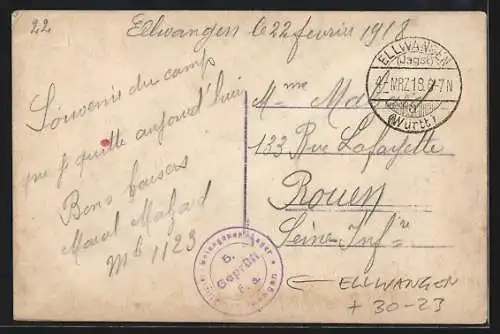 22
Ellwangen le 22 fevrier 1918
Souvenir du camp
que je quitte aujourd'hui
Bons baisers
Marcel
Mle 1123
ELLWANGEN
(Jagst)
MRZ 18 6-7N
(Württ)
Mme
133 Rue Lafayette
Rouen
Seine Infre
5.
Geprüft
F. a.
← ELLWANGEN
+ 30-23